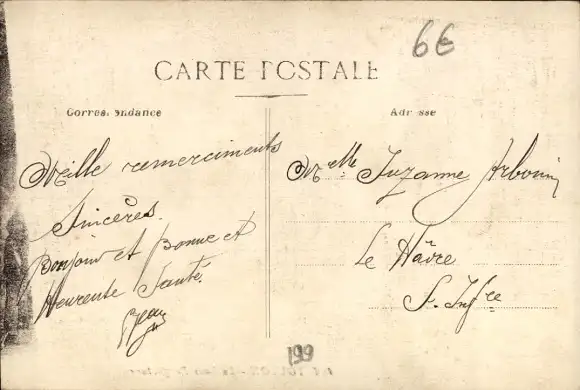 6€
CARTE POSTALE
Correspondance
Adresse
Mille remerciments
Sincères.
Bonjour et bonne et
Heureuse Santé.
Jean
Melle Suzanne Arbonin
Le Hâvre
S. Infre
199